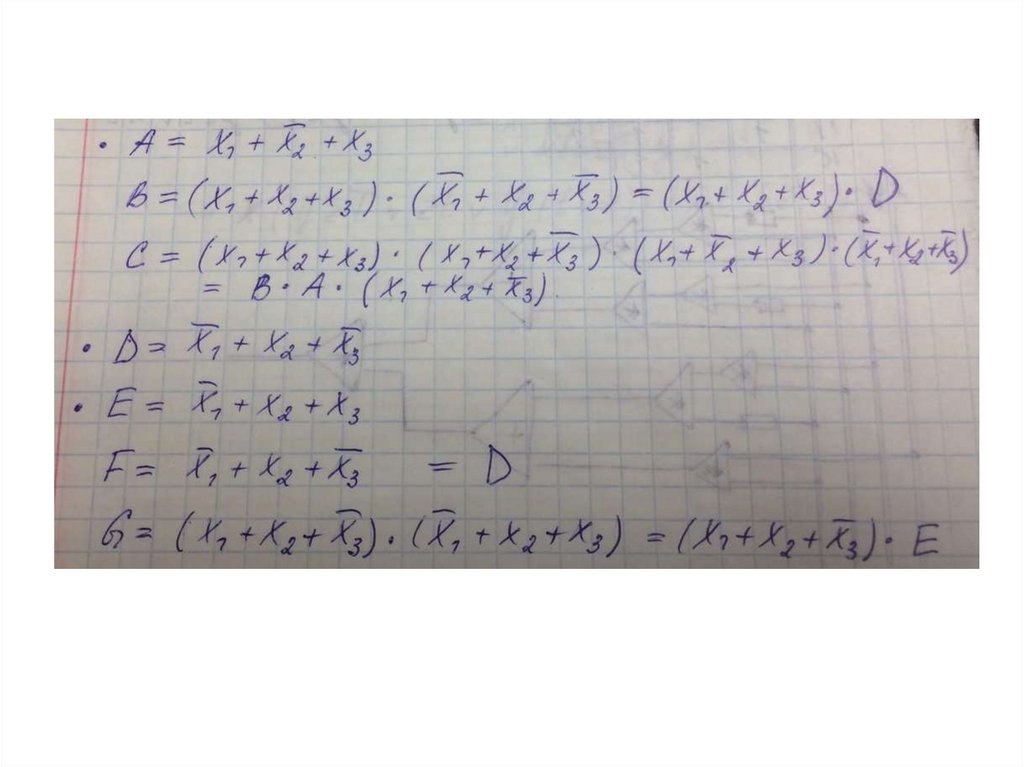 • A = x₁ + x̅₂ + x₃
B = (x₁ + x₂ + x₃) · (x̅₁ + x₂ + x̅₃) = (x₁ + x₂ + x₃) · D
C = (x₁ + x₂ + x₃) · (x₁ + x₂ + x̅₃) · (x₁ + x̅₂ + x₃) · (x̅₁ + x₂ + x̅₃)
= B · A · (x₁ + x₂ + x̅₃)
• D = x̅₁ + x₂ + x̅₃
• E = x̅₁ + x₂ + x₃
F = x̅₁ + x₂ + x̅₃ = D
G = (x₁ + x₂ + x̅₃) · (x̅₁ + x₂ + x₃) = (x₁ + x₂ + x̅₃) · E